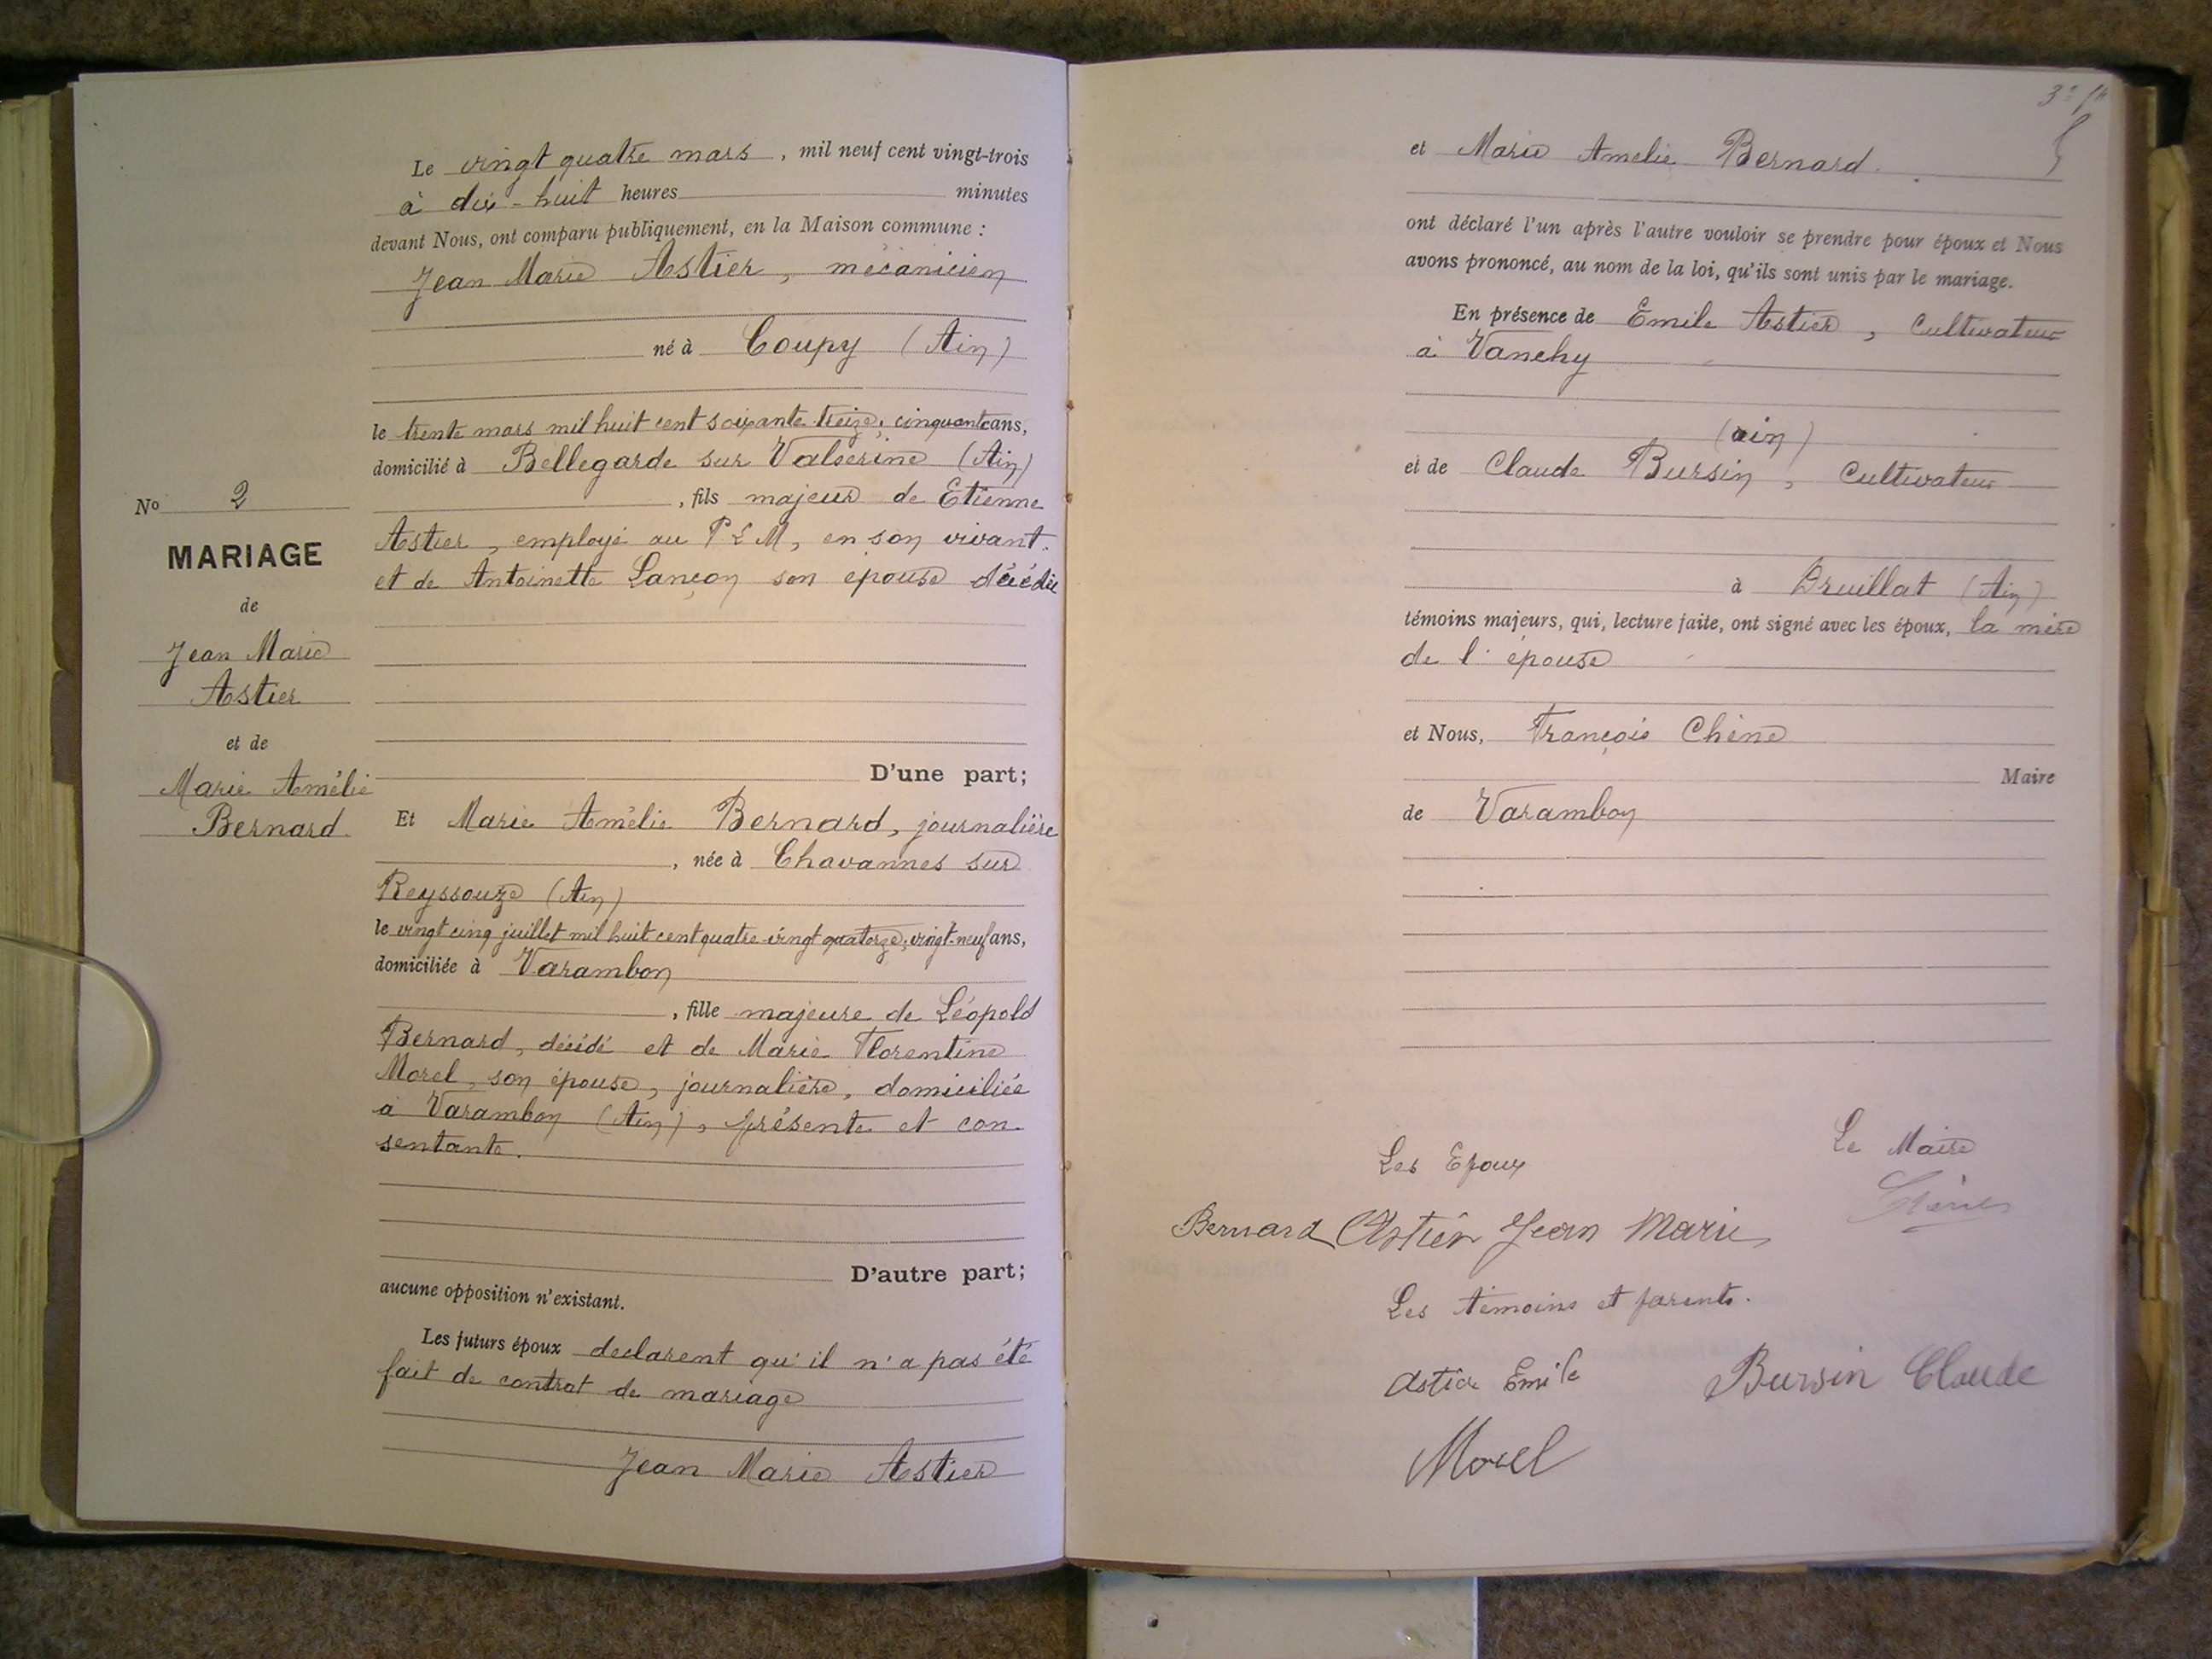 Le vingt quatre mars, mil neuf cent vingt-trois
à dix-huit heures minutes
devant Nous, ont comparu publiquement, en la Maison commune :
Jean Marie Astier, mécanicien
né à Coupy (Ain)
le trente mars mil huit cent soixante treize, cinquante ans,
domicilié à Bellegarde sur Valserine (Ain)
, fils majeur de Etienne
Astier, employé au P L M, en son vivant.
et de Antoinette Lançon son épouse décédée
D'une part;
No 2
MARIAGE
de
Jean Marie
Astier
et de
Marie Amélie
Bernard.
Et Marie Amélie Bernard, journalière
, née à Chavannes sur
Reyssouze (Ain)
le vingt cinq juillet mil huit cent quatre-vingt quatorze, vingt-neuf ans,
domiciliée à Varambon
, fille majeure de Léopold
Bernard, décédé et de Marie Florentine
Morel, son épouse, journalière, domiciliée
à Varambon (Ain), présente et con-
sentante.
D'autre part;
aucune opposition n'existant.
Les futurs époux declarent qu'il n'a pas été
fait de contrat de mariage
Jean Marie Astier
et Marie Amelie Bernard.
ont déclaré l'un après l'autre vouloir se prendre pour époux et Nous
avons prononcé, au nom de la loi, qu'ils sont unis par le mariage.
En présence de Emile Astier, Cultivateur
à Vanchy
(ain)
et de Claude Bursin, Cultivateur
à Druillat (Ain)
témoins majeurs, qui, lecture faite, ont signé avec les époux, la mère
de l'épouse
et Nous, François Chêne
Maire
de Varambon
Les Epoux
Le Maire
Chêne
Bernard Astier Jean Marie
Les témoins et parents.
Astier Emile Bursin Claude
Morel